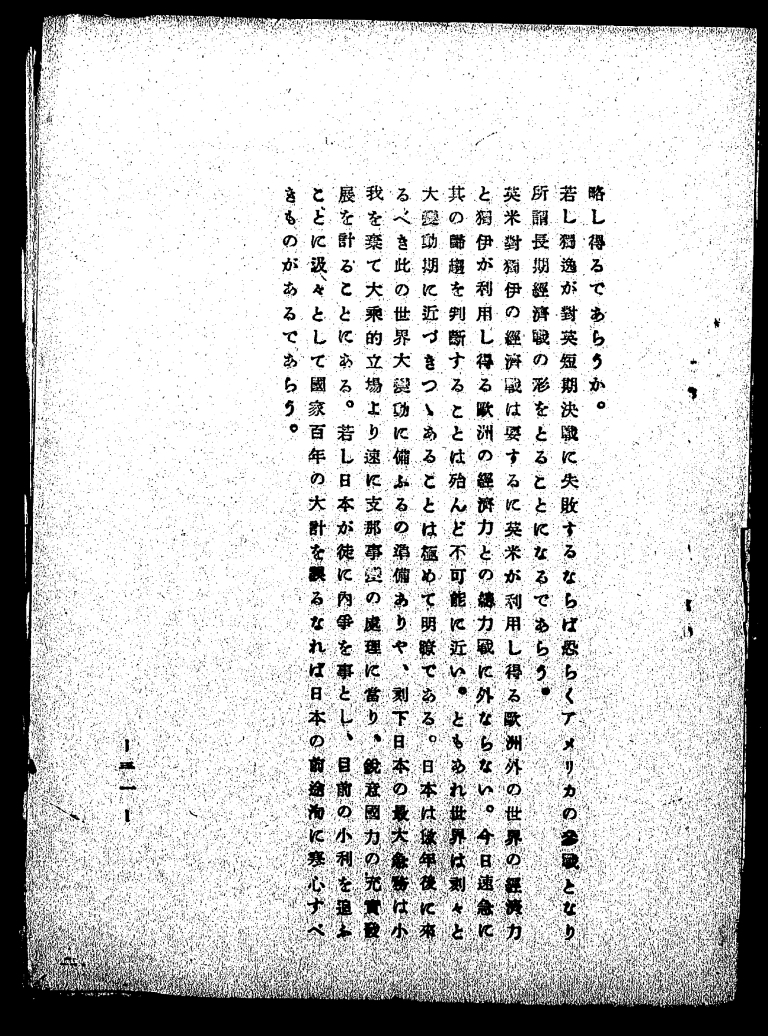 略し得るであらうか。
若し獨逸が對英短期決戰に失敗するならば恐らくアメリカの參戰となり
所謂長期經濟戰の形をとることになるであらう。
英米對獨伊の經濟戰は要するに英米が利用し得る歐洲外の世界の經濟力
と獨伊が利用し得る歐洲の經濟力との總力戰に外ならない。今日速急に
其の歸趨を判斷することは殆んど不可能に近い。ともあれ世界は刻々と
大變動期に近づきつゝあることは極めて明瞭である。日本は數年後に來
るべき此の世界大變動に備ふるの準備ありや、刻下日本の最大急務は小
我を棄て大乘的立場より速に支那事變の處理に當り、銳意國力の充實發
展を計ることにある。若し日本が徒に內爭を事とし、目前の小利を追ふ
ことに汲々として國家百年の大計を誤るなれば日本の前途洵に寒心すべ
きものがあるであらう。